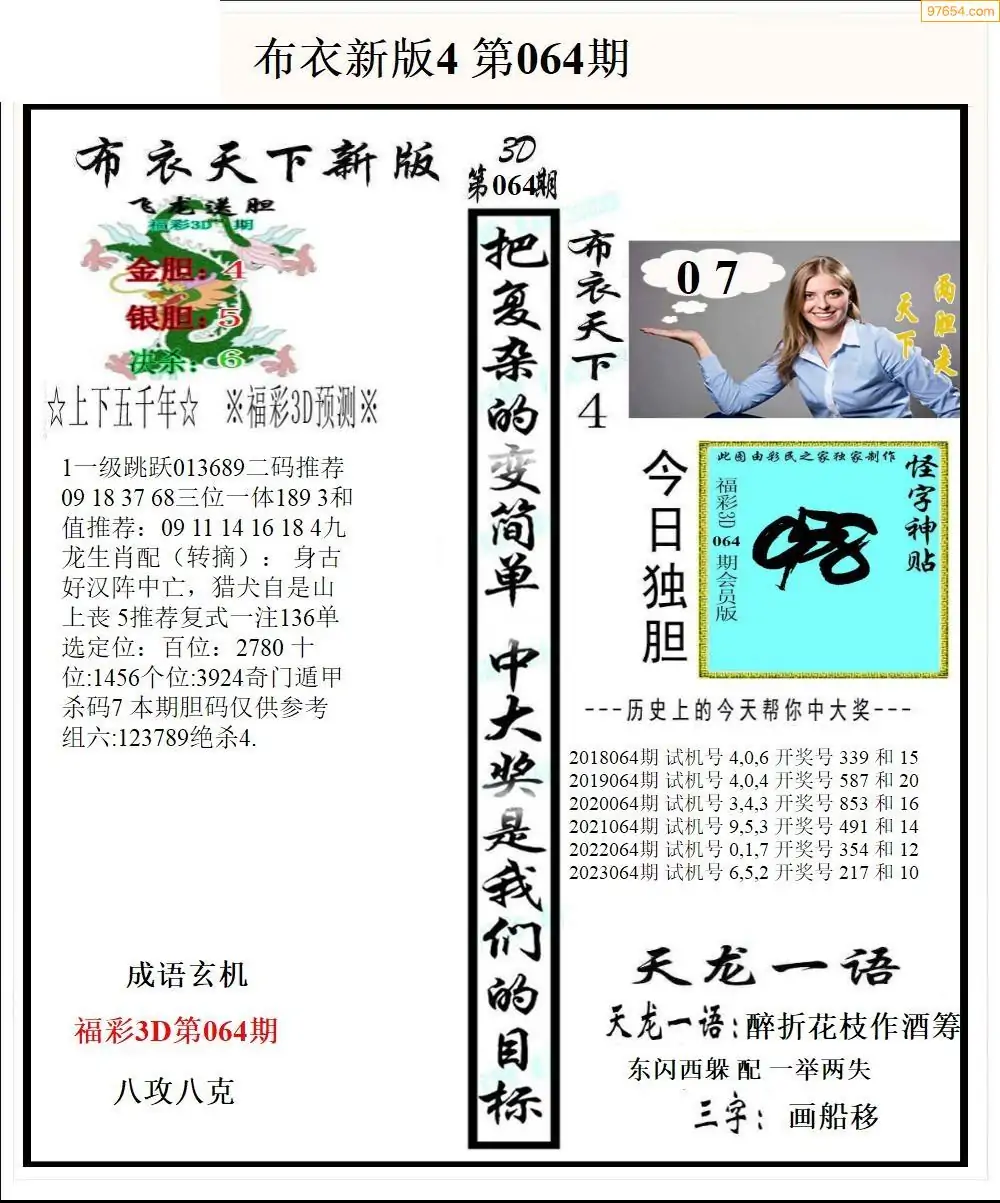 97654.com
布衣新版4 第064期
布衣天下新版
飞龙送胆
福彩3D 期
金胆：4
银胆：5
决杀：6
☆上下五千年☆ ※福彩3D预测※
1一级跳跃013689二码推荐
09 18 37 68三位一体189 3和
值推荐：09 11 14 16 18 4九
龙生肖配（转摘）： 身古
好汉阵中亡，猎犬自是山
上丧 5推荐复式一注136单
选定位：百位：2780 十
位:1456个位:3924奇门遁甲
杀码7 本期胆码仅供参考
组六:123789绝杀4.
成语玄机
福彩3D第064期
八攻八克
3D
第064期
把复杂的变简单 中大奖是我们的目标
布衣天下4
0 7
两胆走
天下
今日独胆
此图由彩民之家独家制作
怪字神贴
福彩3D 064 期会员版
---历史上的今天帮你中大奖---
2018064期 试机号 4,0,6 开奖号 339 和 15
2019064期 试机号 4,0,4 开奖号 587 和 20
2020064期 试机号 3,4,3 开奖号 853 和 16
2021064期 试机号 9,5,3 开奖号 491 和 14
2022064期 试机号 0,1,7 开奖号 354 和 12
2023064期 试机号 6,5,2 开奖号 217 和 10
天龙一语
天龙一语:醉折花枝作酒筹
东闪西躲 配 一举两失
三字：画船移